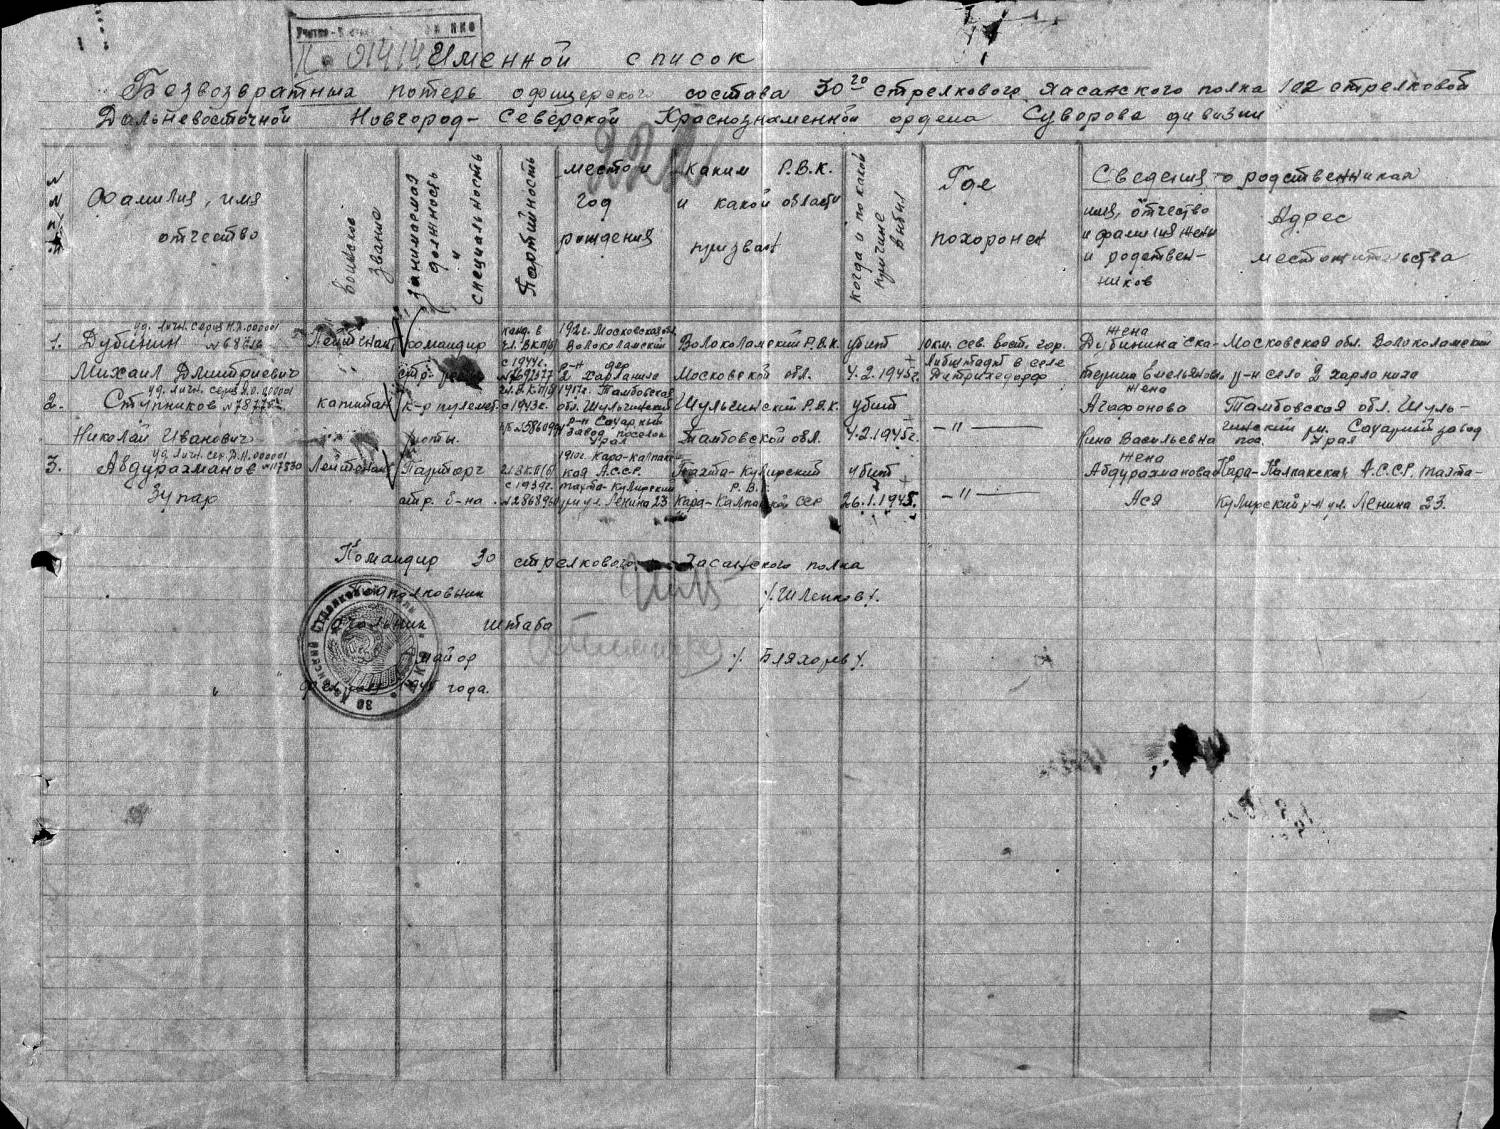 № 01414
Именной список
Безвозвратных потерь офицерского состава 30го стрелкового Хасанского полка 102 стрелковой
Дальневосточной Новгород-Северской Краснознаменной ордена Суворова дивизии
Фамилия, имя отчество
воинское звание
занимаемая должность и специальность
Партийность
место и год рождения
Каким Р.В.К. и какой области призван
когда и по какой причине выбыл
Где похоронен
Сведения о родственниках
имя, отчество и фамилия жены и родственников
Адрес местожительства
1. Дубинин Михаил Дмитриевич
уд. личн. серия
Лейтенант
командир стр.
канд. в чл. ВКП(б) с 1944г.
Московская обл. Волоколамский р-н дер
Волоколамский Р.В.К. Московской обл.
убит 4.2.1945г.
10 км. сев. вост. гор. Либштадт в селе Дитрихсдорф
жена Дубинина
Московская обл. Волоколамский р-н село
2. Ступников Николай Иванович
уд. личн. серия
капитан
к-р пулемет. роты.
чл. В.К.П(б) с 1943г.
1917г. Тамбовская обл. Шульгинский р-н Сахарный завод поселок Урал
Шульгинский Р.В.К. Тамбовской обл.
убит 4.2.1945г.
— " —
жена Агафонова Нина Васильевна
Тамбовская обл. Шульгинский рн. Сахарный завод пос. Урал
3. Абдурахманов Зупар
уд. личн. сер.
Лейтенант
Парторг стр. б-на
чл. ВКП(б) с 1939г.
1910г. Кара-Калпакская А.С.С.Р. Тахта-Купирский ул. Ленина 23
Тахта-Купирский Р.В.К. Кара-Калпакской ССР
убит 26.1.1945г.
— " —
жена Абдурахманова Ася
Кара-Калпакская А.С.С.Р. Тахта-Купирский р-н ул. Ленина 23.
Командир 30 стрелкового Хасанского полка
Подполковник /Шленков/.
Начальник штаба
Майор / Бляхарев/.
1945 года.